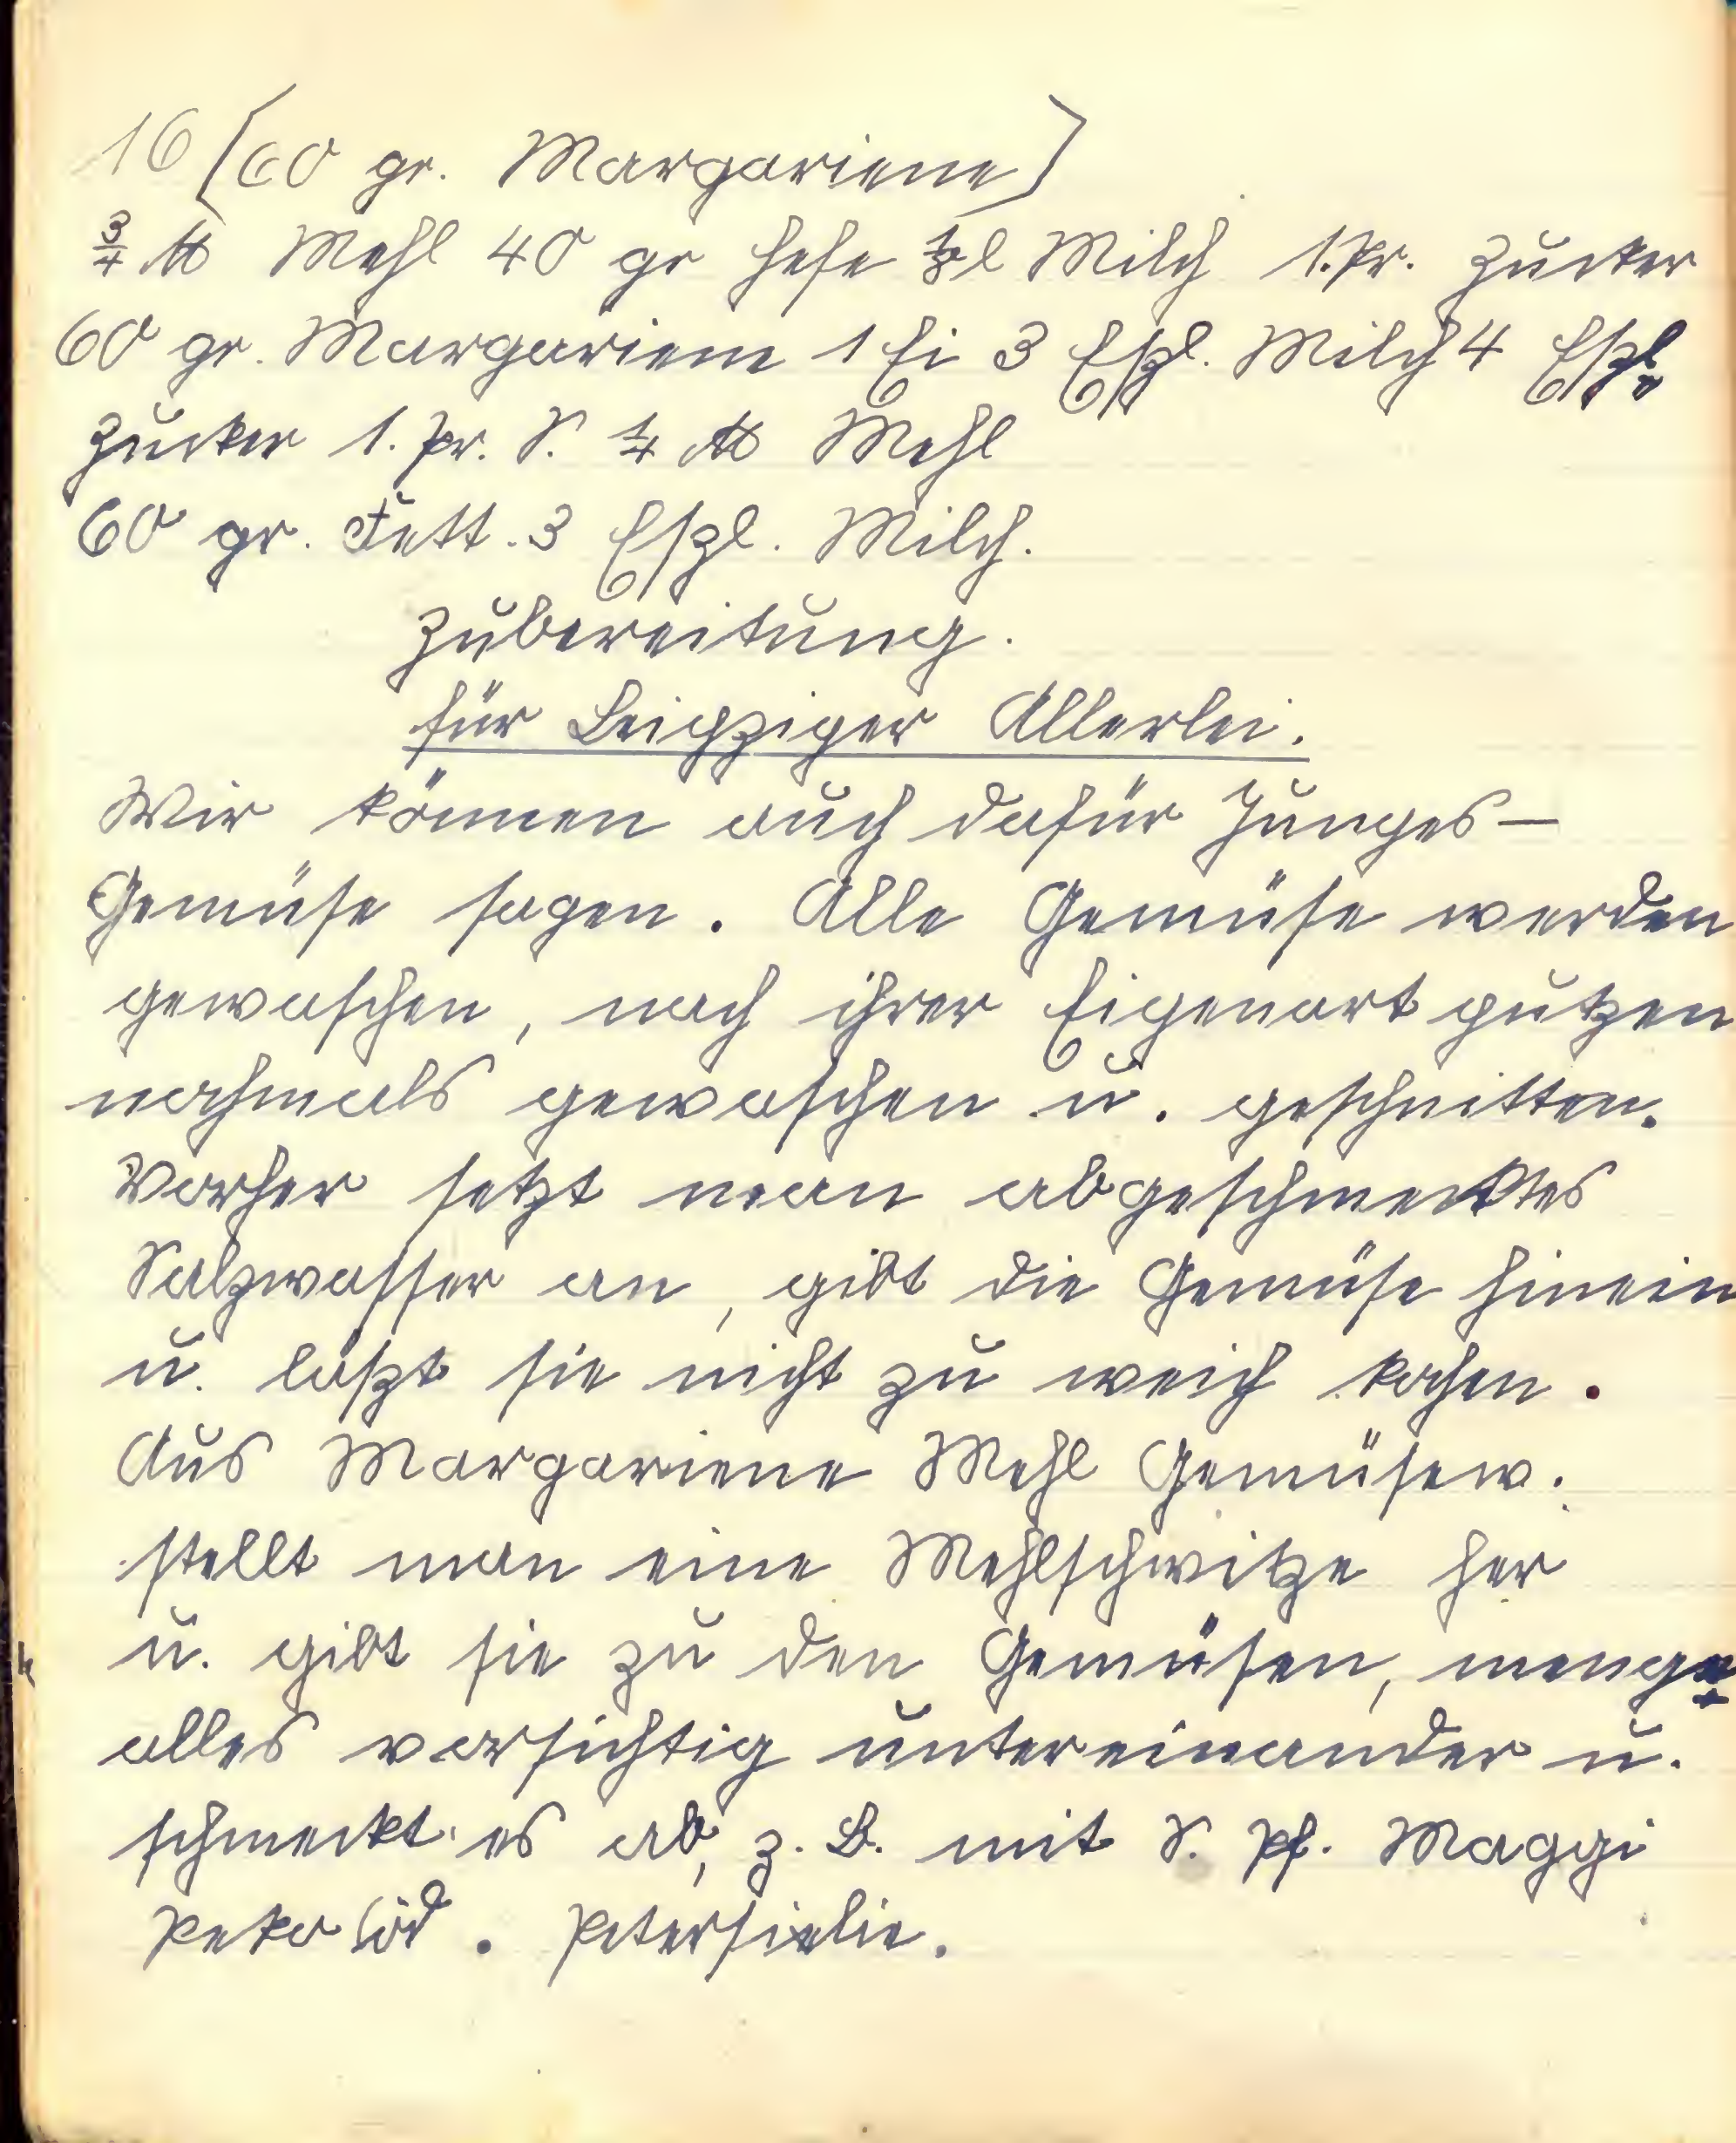 16 [60 gr. Margariene]
¾ ℔ Mehl 40 gr Hefe ⅛ l Milch 1. Pr. Zucker
60 gr. Margariene 1 Ei 3 Eßl. Milch 4 Eßl.
Zucker 1. Pr. S. ¼ ℔ Mehl
60 gr. Fett. 3 Eßl. Milch.
Zubereitung.
für Leipziger Allerlei.
Wir können auch dafür Junges-
Gemüse sagen. Alle Gemüse werden
gewaschen, nach ihrer Eigenart putzen
nochmals gewaschen u. geschnitten.
Vorher setzt man abgeschmecktes
Salzwasser an, gibt die Gemüse hinein
u. läßt sie nicht zu weich kochen.
Aus Margariene Mehl Gemüsew.
stellt man eine Mehlschwitze her
u. gibt sie zu den Gemüsen, menge
alles vorsichtig untereinander u.
schmeckt es ab, z. B. mit S. Pf. Maggi
od. Petersielie.